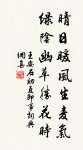 晴日暖風生麥氣
綠陰幽草勝花時
王安石初夏即事詞典
網喜